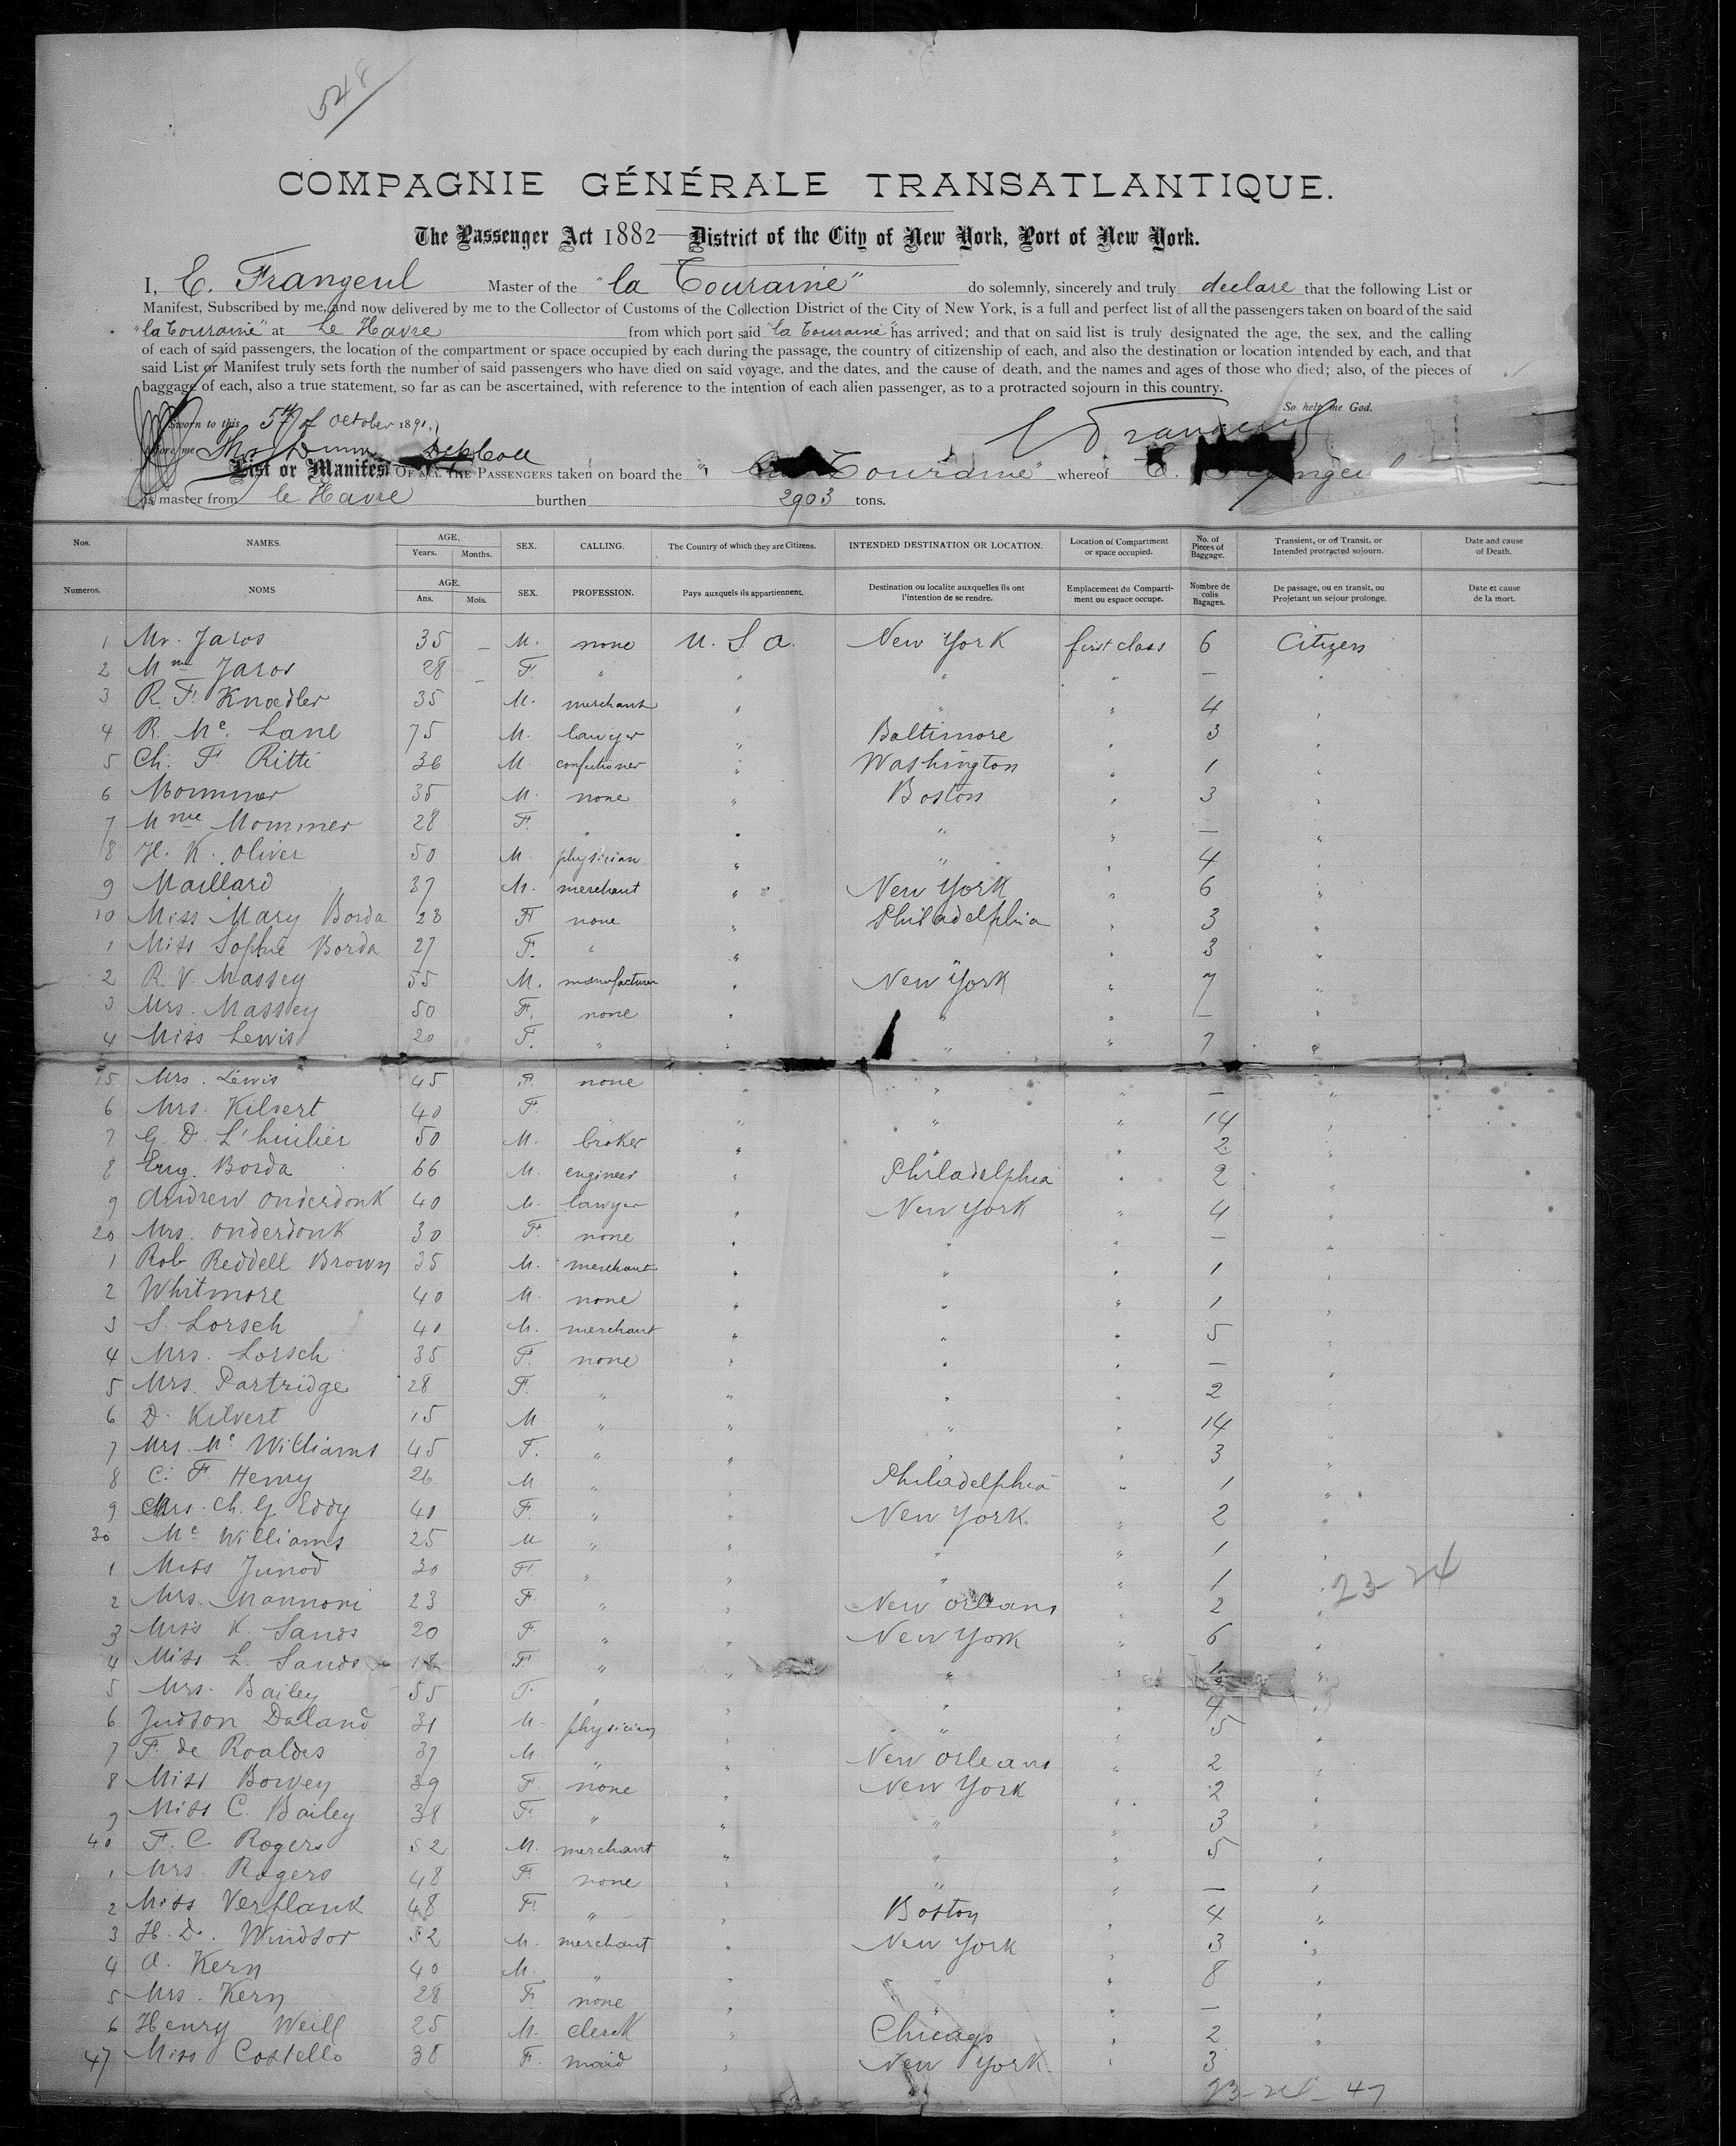 548
COMPAGNIE GÉNÉRALE TRANSATLANTIQUE.
The Passenger Act 1882—District of the City of New York, Port of New York.
I, E. Frangeul Master of the "la Touraine" do solemnly, sincerely and truly declare that the following List or
Manifest, Subscribed by me, and now delivered by me to the Collector of Customs of the Collection District of the City of New York, is a full and perfect list of all the passengers taken on board of the said
"la Touraine" at Le Havre from which port said "la Touraine" has arrived; and that on said list is truly designated the age, the sex, and the calling
of each of said passengers, the location of the compartment or space occupied by each during the passage, the country of citizenship of each, and also the destination or location intended by each, and that
said List or Manifest truly sets forth the number of said passengers who have died on said voyage, and the dates, and the cause of death, and the names and ages of those who died; also, of the pieces of
baggage of each, also a true statement, so far as can be ascertained, with reference to the intention of each alien passenger, as to a protracted sojourn in this country.
So help me God.
Sworn to this 5th of October 1891, E Frangeul
before me Thos Dunn Dep Coll
List or Manifest OF ALL THE PASSENGERS taken on board the "la Touraine" whereof E. Frangeul
is master from le Havre burthen 2903 tons.
Nos. NAMES. AGE. Years. Months. SEX. CALLING. The Country of which they are Citizens. INTENDED DESTINATION OR LOCATION. Location of Compartment or space occupied. No. of Pieces of Baggage. Transient, or on Transit, or Intended protracted sojourn. Date and cause of Death.
Numeros. NOMS AGE. Ans. Mois. SEX. PROFESSION. Pays auxquels ils appartiennent. Destination ou localite auxquelles ils ont l'intention de se rendre. Emplacement du Compartiment ou espace occupe. Nombre de colis Bagages. De passage, ou en transit, ou Projetant un sejour prolonge. Date et cause de la mort.
1 Mr. Jaros 35 – M. none U. S. A. New York first class 6 Citizen
2 Mme Jaros 28 – F. " " " " — "
3 R. F. Knoedler 35 M. merchant " " " 4 "
4 R. Mc. Lane 75 M. lawyer " Baltimore " 3 "
5 Ch. F. Ritti 36 M. confectioner " Washington " 1 "
6 Mommer 35 M. none " Boston " 3 "
7 Mme Mommer 28 F. " " " " — "
8 H. K. Oliver 50 M. physician " " " 4 "
9 Maillard 37 M. merchant " New York " 6 "
10 Miss Mary Borda 23 F none " Philadelphia " 3 "
1 Miss Sophie Borda 27 F. " " " 3 "
2 R. V. Massey 55 M. manufacturer " New York " 7 "
3 Mrs. Massey 50 F. none " " " — "
4 Miss Lewis 20 F. " " " " 7 "
15 Mrs. Lewis 45 F. none " " " — "
6 Mrs. Kilvert 40 F " " " 14 "
7 G. D. L'huilier 50 M. broker " " " 2 "
8 Eug. Borda 66 M. engineer " Philadelphia " 2 "
9 Andrew Onderdonk 40 M. lawyer " New York " 4 "
20 Mrs. Onderdonk 30 F. none " " " — "
1 Rob Reddell Brown 35 M. merchant " " " 1 "
2 Whitmore 40 M. none " " " 1 "
3 S. Lorsch 40 M. merchant " " " 5 "
4 Mrs. Lorsch 35 F. none " " " — "
5 Mrs. Partridge 28 F. " " " " 2 "
6 D. Kilvert 15 M " " " " 14 "
7 Mrs. Mc Williams 45 F. " " " " 3 "
8 C. F. Henry 26 M " " Philadelphia " 1 "
9 Mrs. Ch. G Eddy 40 F. " " New York. " 2 "
30 Mc Williams 25 M " " " " 1 "
1 Miss Junod 30 F. " " " " 1 " 23-24
2 Mrs. Mannoni 23 F. " " New Orleans " 2 "
3 Miss K. Sands 20 F. " " New York " 6 "
4 Miss L. Sands 18 F " " " " "
5 Mrs. Bailey 55 F. " " " " 4 "
6 Judson Daland 31 M. physician " " " 5 "
7 F. de Roaldes 37 M. " " New Orleans " 2 "
8 Miss Bowey 39 F. none " New York " 2 "
9 Miss C. Bailey 38 F. " " " " 3 "
40 F. C. Rogers 52 M. merchant " " " 5 "
1 Mrs. Rogers 48 F none " " " — "
2 Miss Verplank 48 F. " " Boston " 4 "
3 H. D. Windsor 52 M. merchant " New York " 3 "
4 A. Kern 40 M. " " " " 8 "
5 Mrs. Kern 28 F. none " " " — "
6 Henry Weill 25 M. clerk " Chicago " 2 "
47 Miss Costello 38 F. maid " New York. " 3
23-24-47